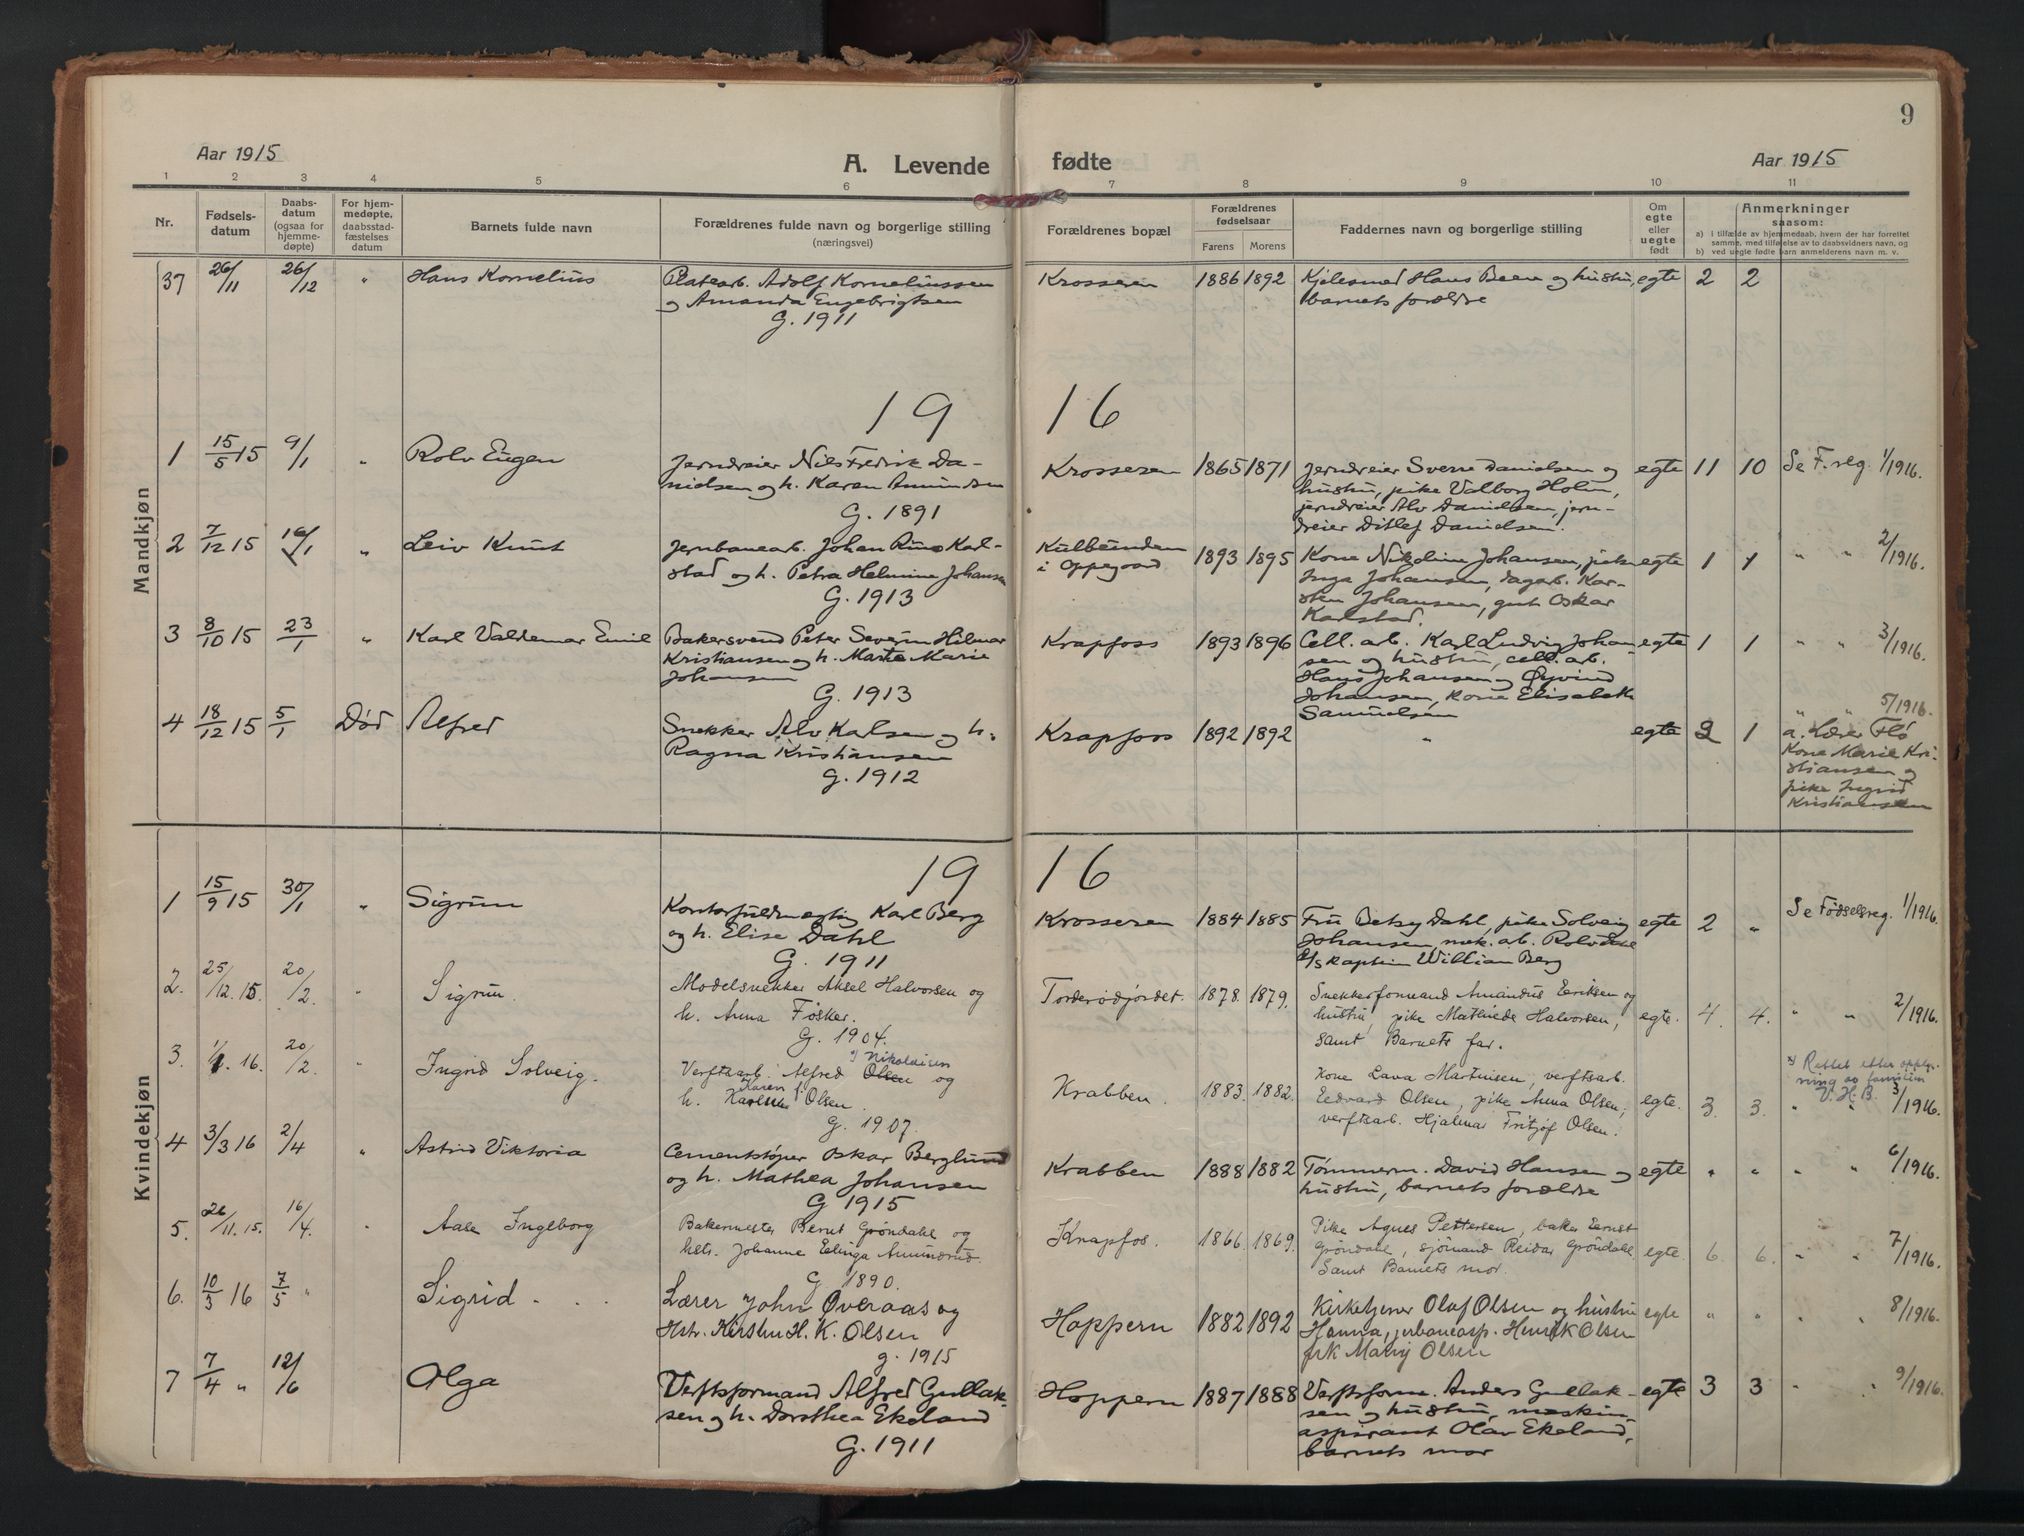 9
Aar 1915
A. Levende
fødte
Aar 1915
1 2 3 4 5 6 7 8 9 10 11
Nr.
Fødsels-
datum
Daabs-
datum
(ogsaa for
hjemme-
døpte)
For hjem-
medøpte,
daabsstad-
fæstelses
datum
Barnets fulde navn
Forældrenes fulde navn og borgerlige stilling
(næringsvei)
Forældrenes bopæl
Forældrenes
fødselsaar
Farens Morens
Faddernes navn og borgerlige stilling
Om
egte
eller
uegte
født
Anmerkninger
saasom:
a) i tilfælde av hjemmedaab, hvem der har forrettet
samme, med tilføielse av to daabsvidners navn, og
b) ved uegte fødte barn anmelderens navn m. v.
Mandkjøn
37 26/11 26/12 " Hans Kornelius
Platearb. Adolf Korneliussen
og Amanda Engebrigtsen
G. 1911
Krosseren 1886 1892
Kjelesmed Hans Been og hustru,
barnets forældre
egte 2 2
19 16
1 15/5 15 9/1 " Rolv Eugen
Jerndreier Nils Fredrik Da-
nielsen og h. Karen Amundsen
G. 1891
Krosseren 1865 1871
Jerndreier Sverre Danielsen og
hustru, pike Valborg Holm,
jerndreier Alv Danielsen, jern-
dreier Ditlef Danielsen.
egte 11 10 Se F. reg. 1/1916.
2 7/12 15 16/1 " Leiv Knut
Jernbanearb. Johan Karl-
stad og h. Petra Helmine Johansen
G. 1913
i Oppegaard 1893 1895
Kone Nikoline Johansen, pike
Inga Johansen, dagarb. Kar-
sten Johansen, gut Oskar
Karlstad.
egte 1 1 " " 2/1916.
3 8/10 15 23/1 " Karl Valdemar Emil
Bakersvend Peter Severin Hilmar
Kristiansen og h. Marte Marie
Johansen
G. 1913
Krapfoss 1893 1896
Cell. arb. Karl Ludvig Johan-
sen og hustru, cell. arb.
Hans Johansen og Øyvind
Johansen, kone Elisabeth
Samuelsen
egte 1 1 " " 3/1916.
4 18/12 15 5/1 Død Alfred
Snekker Alv Karlsen og h.
Ragna Kristiansen
G. 1912
Krapfoss 1892 1892
"
egte 2 1
" " 5/1916.
a. Lærer Flø
Kone Marie Kri-
stiansen og
pike Ingrid
Kristiansen
Kvindekjøn
19 16
1 15/9 15 30/1 " Sigrun
Kontorfuldmegtig Karl Berg
og h. Elise Dahl
G. 1911
Krosseren 1884 1885
Fru Betsy Dahl, pike Solveig
Johansen, mek. arb. Rolv
kaptein William Berg
egte 2 " Se Fødselsreg. 1/1916.
2. 25/12. 15. 20/2. " Sigrun.
Modelsnekker Aksel Halvorsen og
h. Anna Fosker.
G. 1904.
Torderødjordet. 1878. 1879.
Snekkerformand Amandus Eriksen og
hustru, pike Mathilde Halvorsen,
samt Barnets far.
egte. 4. 4. " " 2/1916.
3. 1/1. 16. 20/2. " Ingrid Solveig.
x) Nikolaisen
Verftsarb. Alfred Olsen og
Karen f.
h. Olsen.
G. 1907.
Krabben. 1883. 1882.
Kone Lava Martinsen, verftsarb.
Edvard Olsen, pike Anna Olsen,
verftsarb. Hjalmar Fritjof Olsen.
egte. 3. 3.
x) Rettet etter opplys-
ning av familien
V. H. B.
" " 3/1916.
4 3/3 16 2/4 " Astrid Viktoria
Cementstøper Oskar Berglund
og h. Mathea Johansen
G 1915
Krabben 1888 1882
Tømmerm. David Hansen og
hustru, barnets forældre
egte " " " " 6/1916.
5. 26/11. 15. 16/4. " Aase Ingeborg
Bakermester Bernt Grøndahl og
hstr. Johanne Edinga Amundrud.
G. 1890.
Krapfos. 1866. 1869.
Pike Agnes Pettersen, baker Ernst
Grøndahl, sjømand Reidar Grøndahl
samt Barnets mor.
egte. 6. 6. " " 7/1916.
6. 10/3 16 7/5 " Sigrid
Lærer John Øveraas og
Hstr. Kirstin H. K. Olsen
g. 1915
Hoppern 1882 1892
Kirketjener Olaf Olsen og hustru
Hanna, jernbaneasp. Henrik Olsen
frk Mary Olsen
egte " " " " 8/1916.
7 7/4 " 12/6 Olga
Verftsformand Alfred Gullak-
sen og h. Dorothea Ekeland
G. 1911
Hoppern 1887 1888
Verftsform. Anders Gullak-
sen og hustru, maskin-
aspirant Olav Ekeland,
barnets mor
egte 3 3 " " 9/1916.